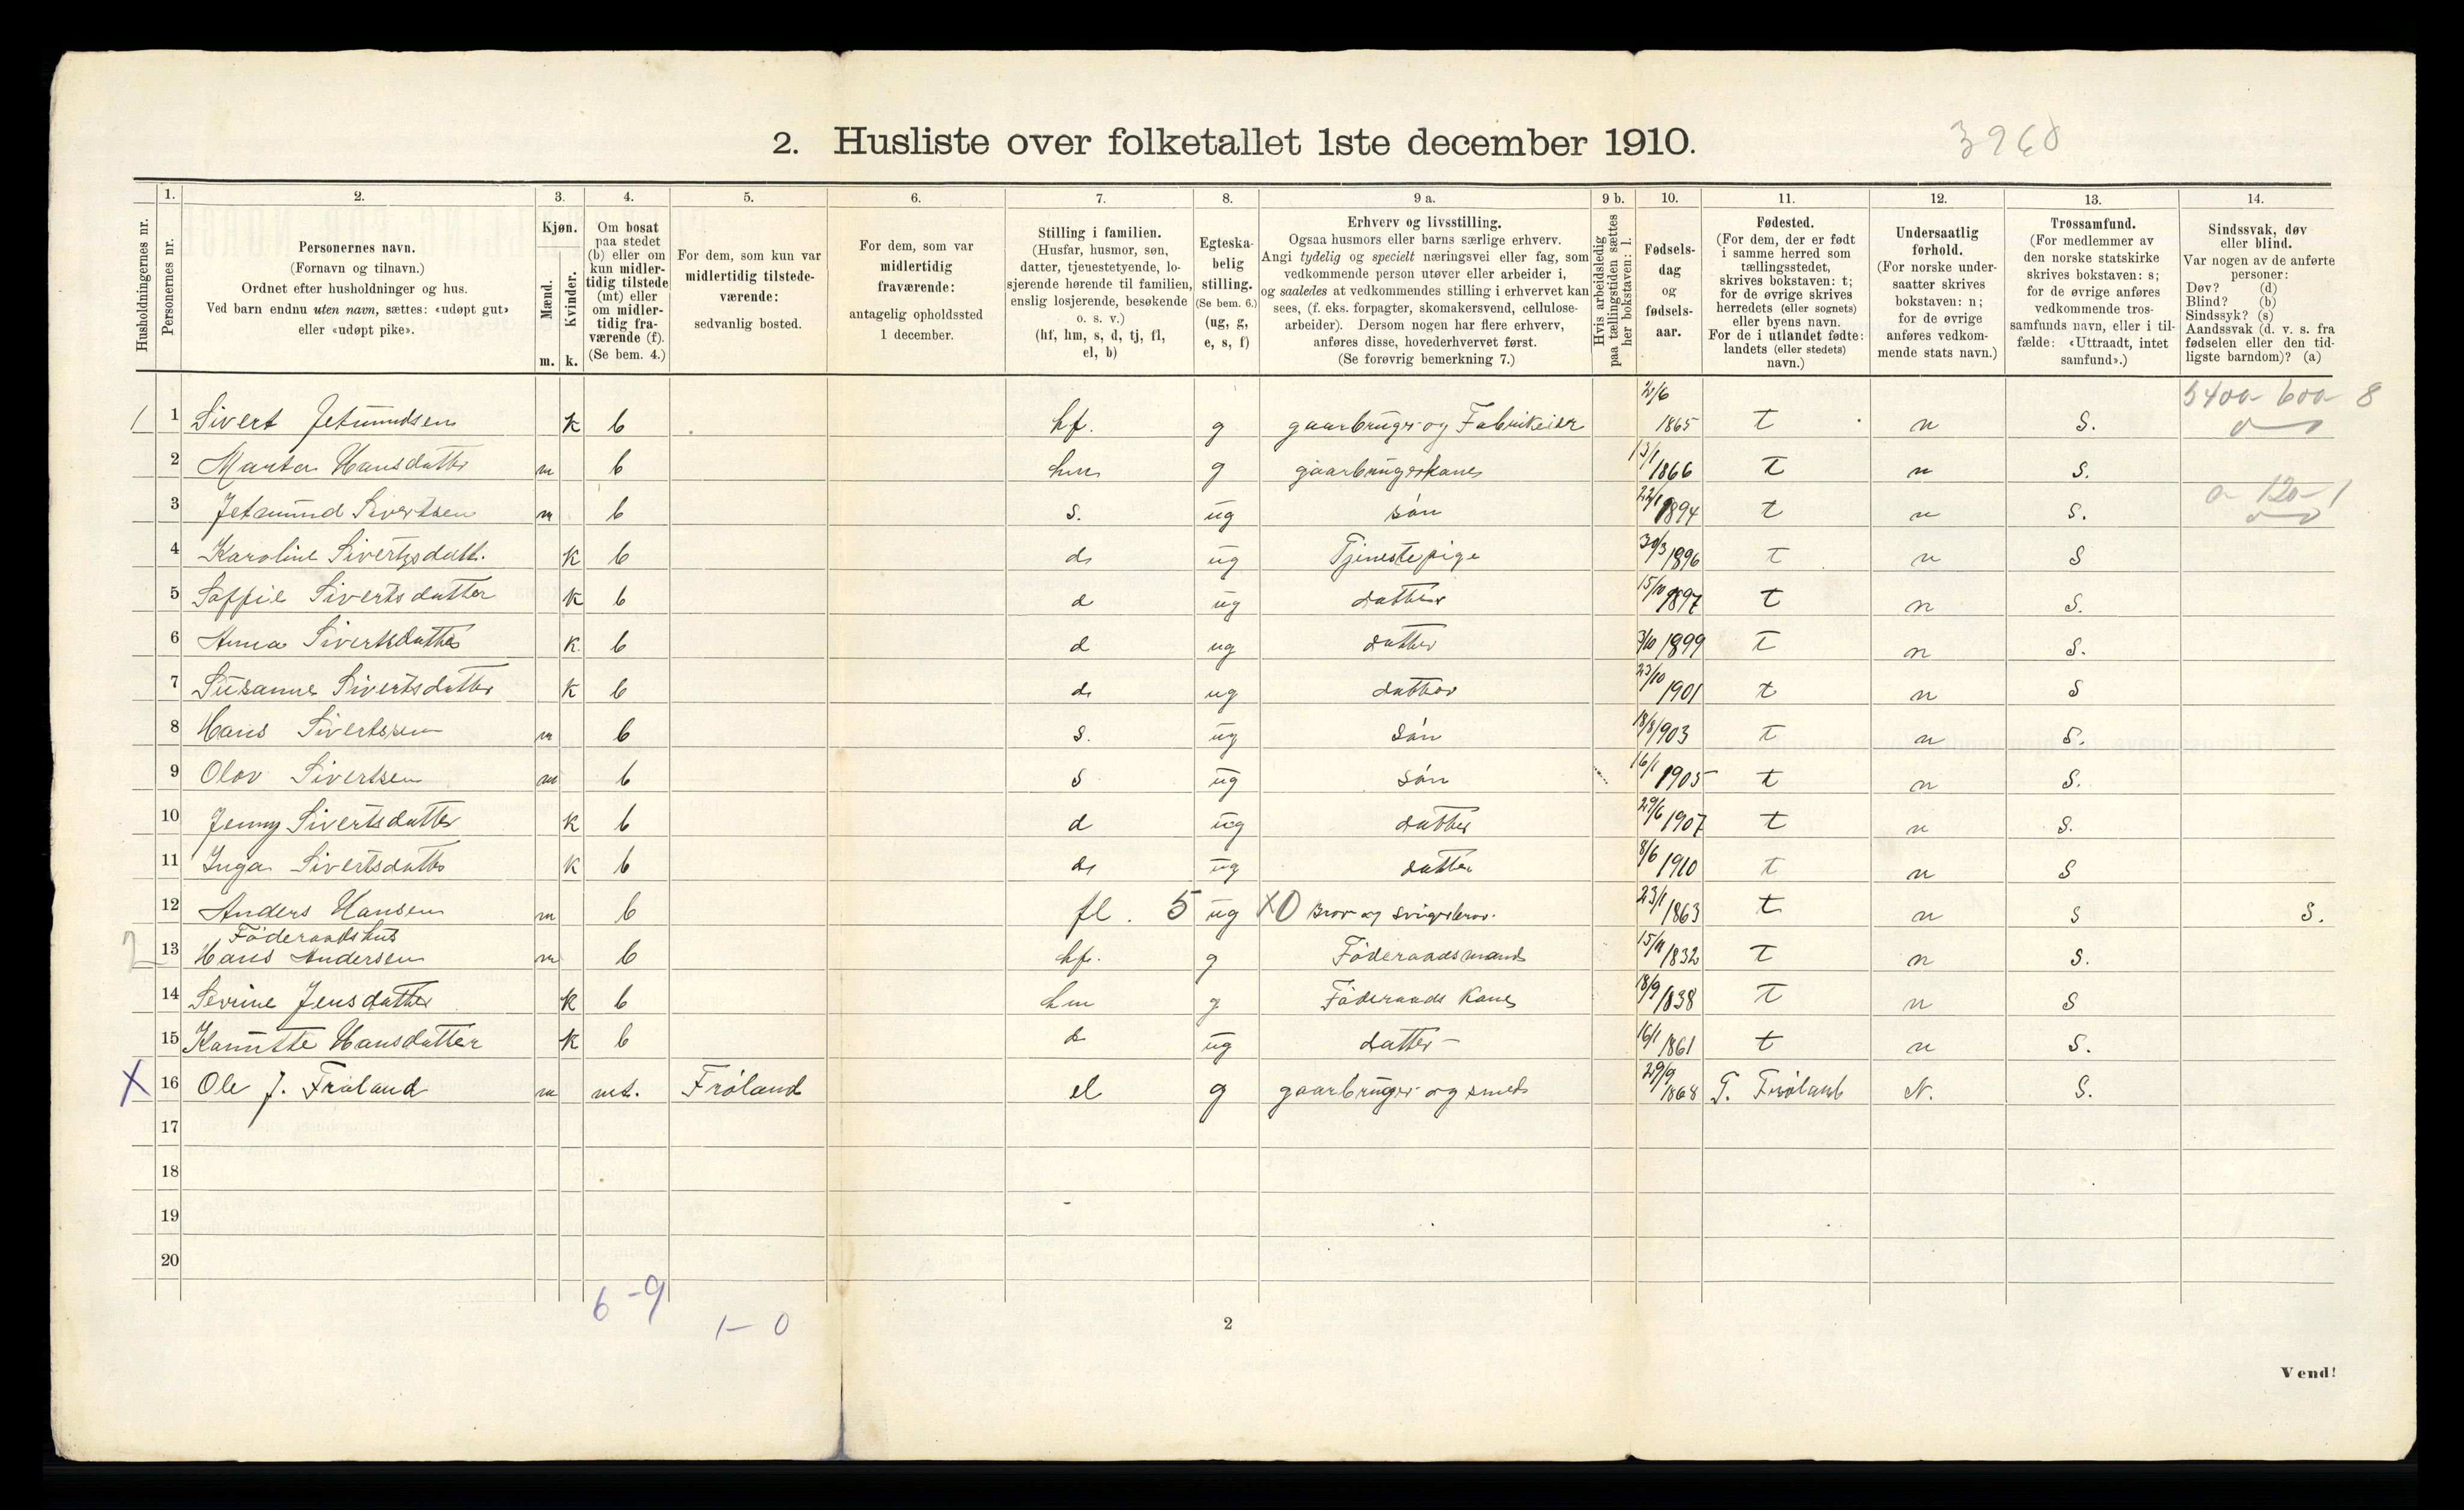 2. Husliste over folketallet 1ste december 1910.
3960
Husholdningernes nr.
1.
Personernes nr.
2.
Personernes navn.
(Fornavn og tilnavn.)
Ordnet efter husholdninger og hus.
Ved barn endnu uten navn, sættes: «udøpt gut»
eller «udøpt pike».
3.
Kjøn.
Mænd.
Kvinder.
m. k.
4.
Om bosat
paa stedet
(b) eller om
kun midler-
tidig tilstede
(mt) eller
om midler-
tidig fra-
værende (f).
(Se bem. 4.)
5.
For dem, som kun var
midlertidig tilstede-
værende:
sedvanlig bosted.
6.
For dem, som var
midlertidig
fraværende:
antagelig opholdssted
1 december.
7.
Stilling i familien.
(Husfar, husmor, søn,
datter, tjenestetyende, lo-
sjerende hørende til familien,
enslig losjerende, besøkende
o. s. v.)
(hf, hm, s, d, tj, fl,
el, b)
8.
Egteska-
belig
stilling.
(Se bem. 6.)
(ug, g,
e, s, f)
9 a.
Erhverv og livsstilling.
Ogsaa husmors eller barns særlige erhverv.
Angi tydelig og specielt næringsvei eller fag, som
vedkommende person utøver eller arbeider i,
og saaledes at vedkommendes stilling i erhvervet kan
sees, (f. eks. forpagter, skomakersvend, cellulose-
arbeider). Dersom nogen har flere erhverv,
anføres disse, hovederhvervet først.
(Se forøvrig bemerkning 7.)
9 b.
Hvis arbeidsledig
paa tællingstiden sættes
her bokstaven: l.
10.
Fødsels-
dag
og
fødsels-
aar.
11.
Fødested.
(For dem, der er født
i samme herred som
tællingsstedet,
skrives bokstaven: t;
for de øvrige skrives
herredets (eller sognets)
eller byens navn.
For de i utlandet fødte:
landets (eller stedets)
navn.)
12.
Undersaatlig
forhold.
(For norske under-
saatter skrives
bokstaven: n;
for de øvrige
anføres vedkom-
mende stats navn.)
13.
Trossamfund.
(For medlemmer av
den norske statskirke
skrives bokstaven: s;
for de øvrige anføres
vedkommende tros-
samfunds navn, eller i til-
fælde: «Uttraadt, intet
samfund».)
14.
Sindssvak, døv
eller blind.
Var nogen av de anførte
personer:
Døv? (d)
Blind? (b)
Sindssyk? (s)
Aandssvak (d. v. s. fra
fødselen eller den tid-
ligste barndom)? (a)
5400 600 8
1 1 Sivert Jetmundsen k b hf. g gaarbruger og Fabrikeier 2/6 1865 t n S.
2 Marta Hansdatter m b hm g gaarbrugerkone 13/1 1866 t n S.
0 120 1
3 Jetmund Sivertsen m b s. ug søn 22/1 1894 t n S.
4 Karoline Sivertsdatt. k b d ug Tjenestepige 30/3 1896 t n S
5 Soffie Sivertsdatter k b d ug datter 15/10 1897 t n S.
6 Anna Sivertsdatter k. b d ug datter 3/10 1899 t n S.
7 Susanne Sivertsdatter k b d ug datter 23/10 1901 t n S
8 Hans Sivertsen m b s. ug søn 18/8 1903 t n S.
9 Olav Sivertsen m b s ug søn 16/1 1905 t n S.
10 Jenny Sivertsdatter k b d ug datter 29/6 1907 t n S.
11 Inga Sivertsdatter k b d ug datter 8/6 1910 t n S
12 Anders Hansen m b fl. 5 ug X0 Bror og svigerbror. 23/1 1863 t n S S.
Føderaadshus
2 13 Hans Andersen m b hf. g Føderaadsmand 15/11 1832 t n S.
14 Sevrine Jensdatter k b hm g Føderaads Kone 18/9 1838 t n S
15 Hansdatter k b d ug datter - 16/1 1861 t n S.
X 16 Ole J. Frøland m mt. Frøland el g gaarbruger og smed 29/9 1868 Frøland N. S.
17
18
19
20
6 - 9
1 - 0
2
Vend!